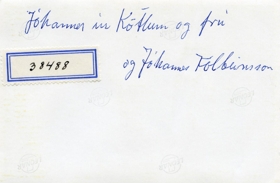 Jóhannes in Kötlum og frú
38488
og Jóhannes Kolbeinsson